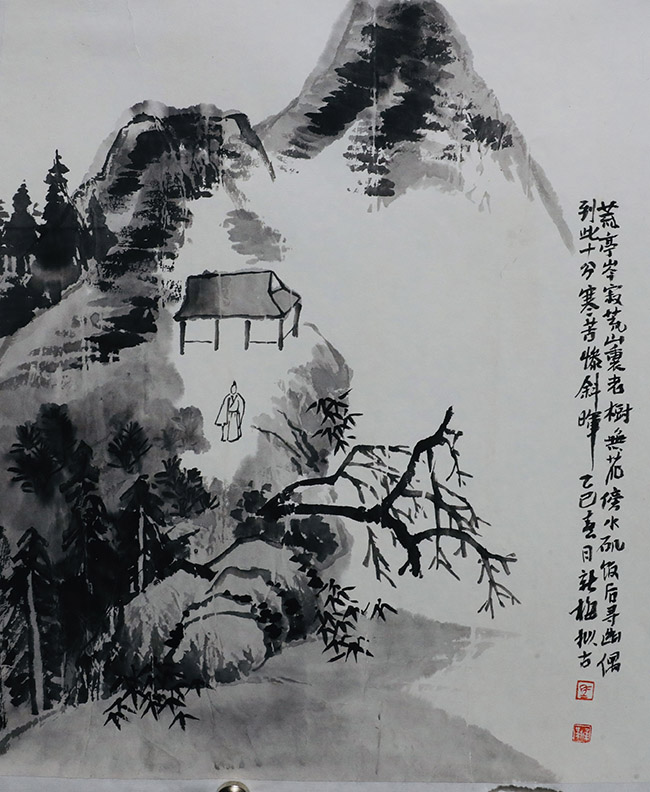 荒亭岑寂荒山裏老樹無花傍水矶饭后寻幽偶
到此十分寒苦惨斜暉 乙巳春日 梅拟古